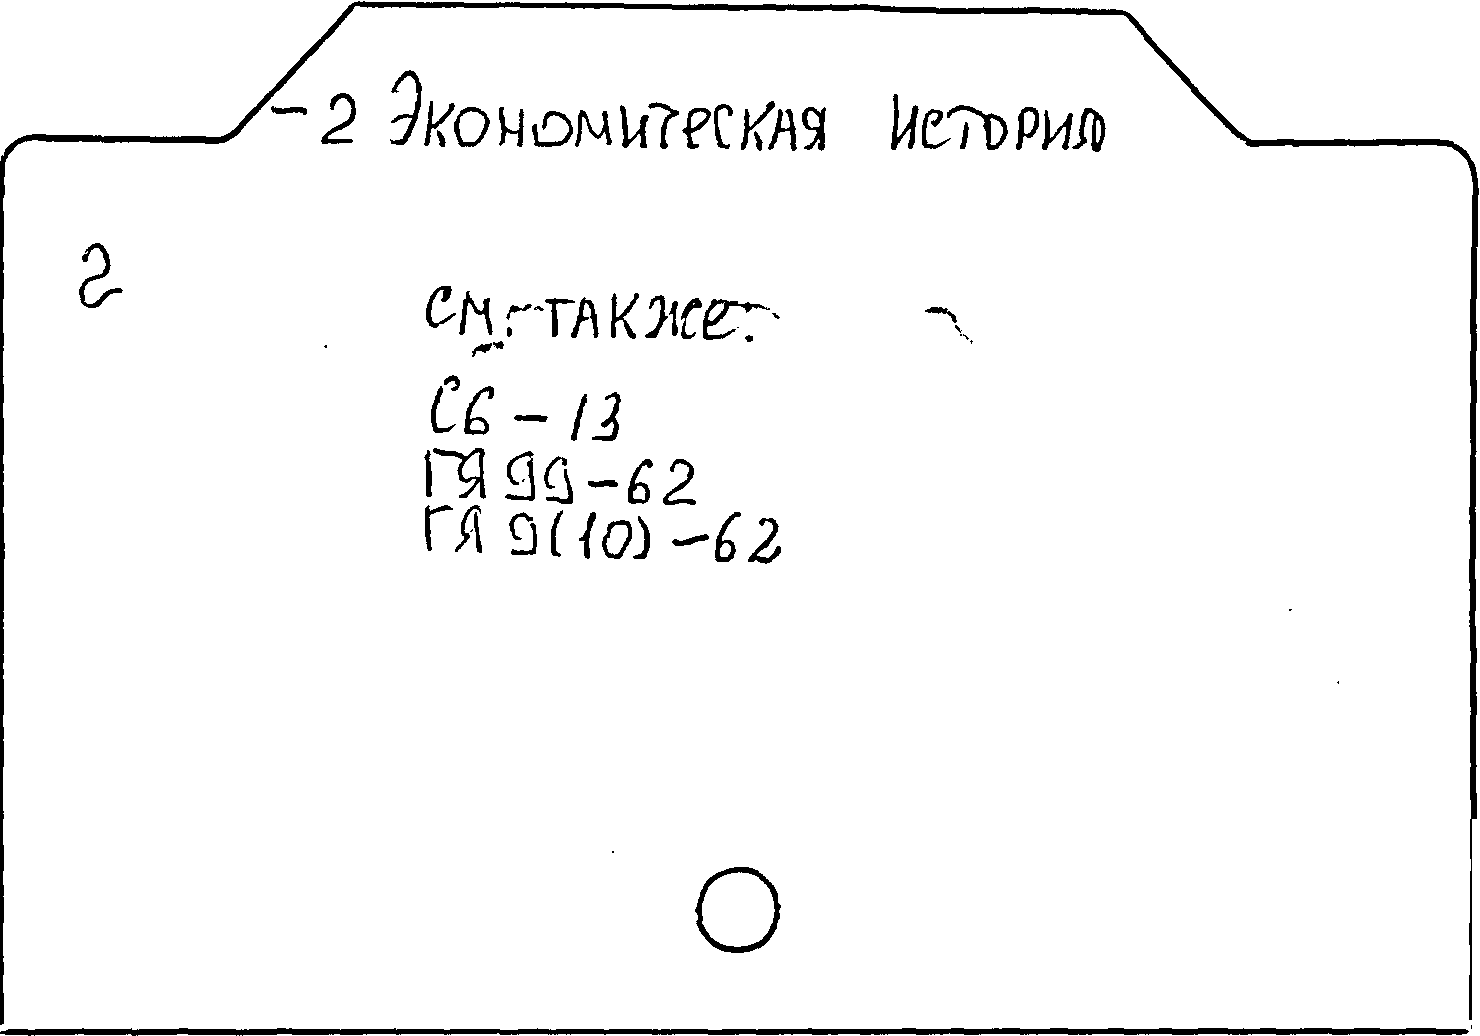 -2 Экономическая история
2
См. также:
С6-13
ГЯ99-62
ГЯ9(10)-62